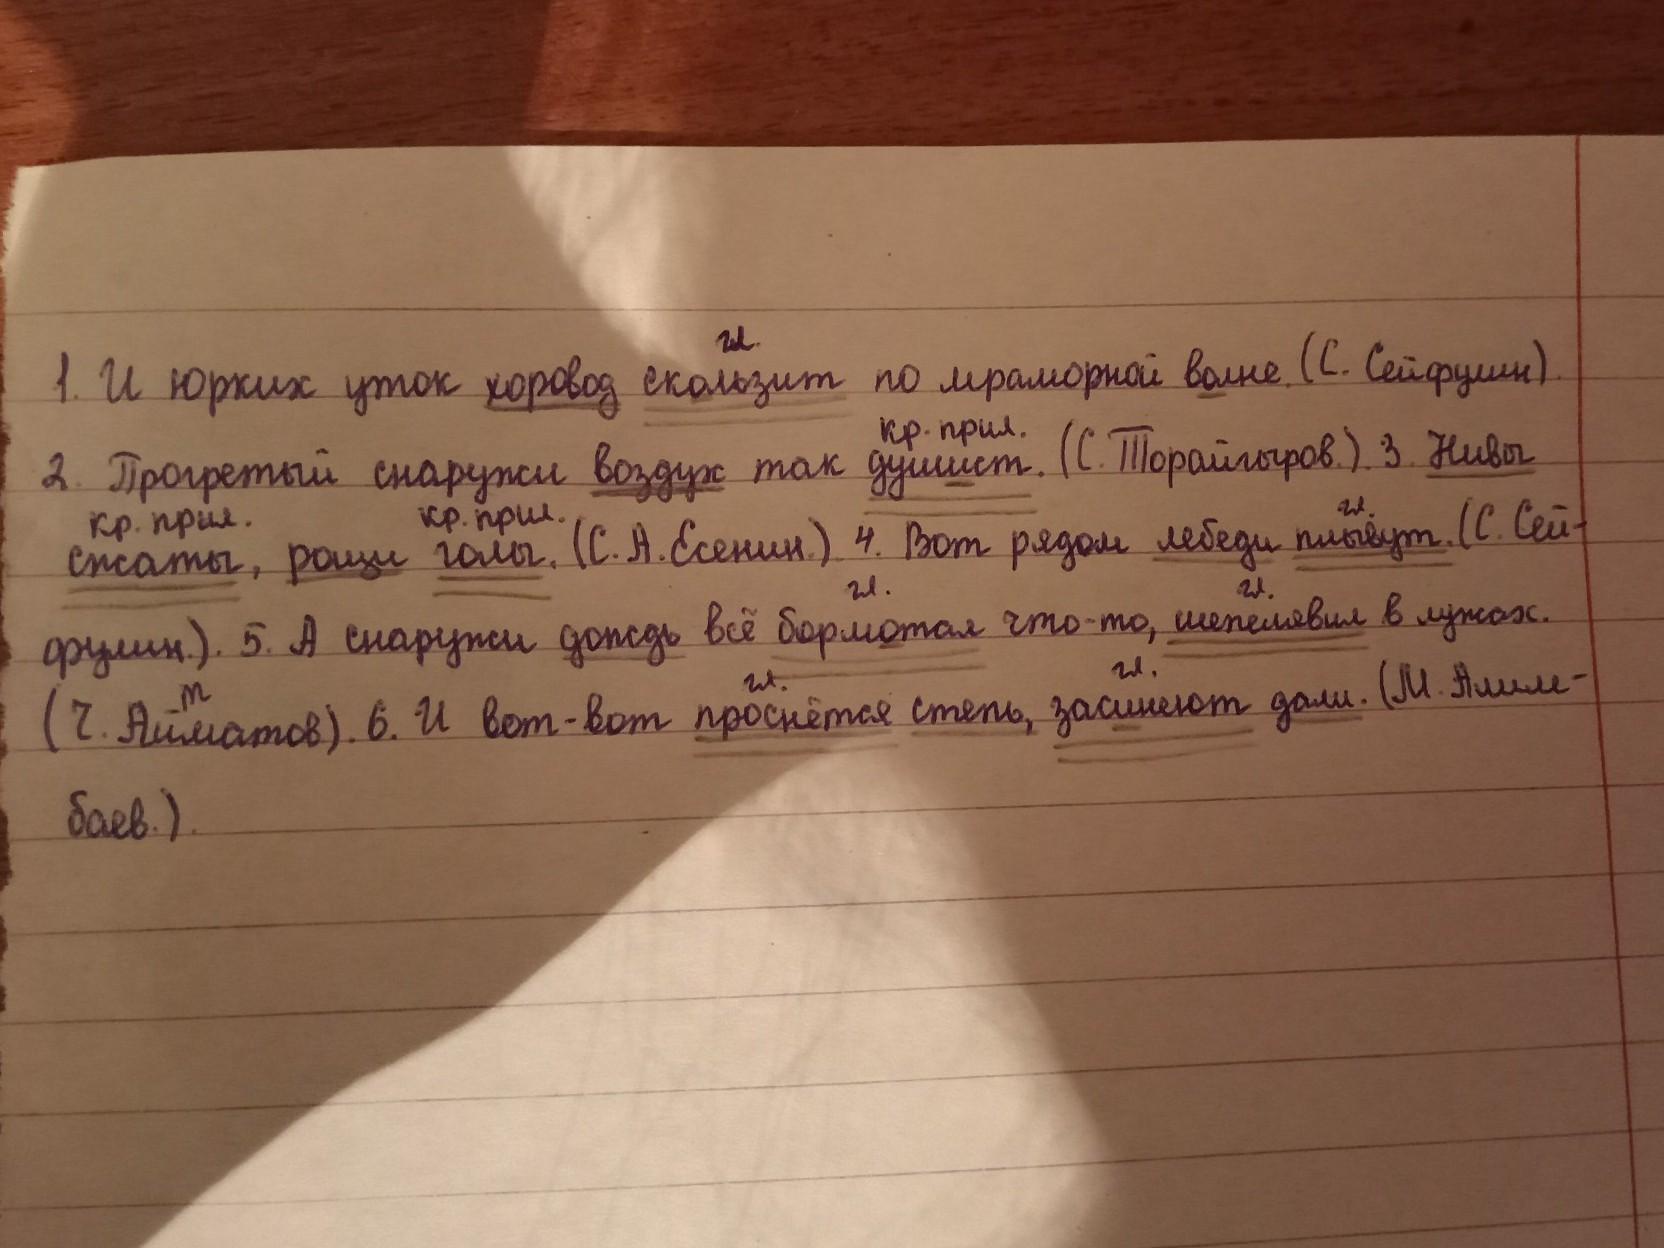 гл.
1. И юрких уток хоровод скользит по мраморной волне. (С. Сейфулин).
кр. прил.
2. Прогретый снаружи воздух так душист. (С. Торайгыров.). 3. Нивы
кр. прил. кр. прил. гл.
сжаты, рощи голы. (С. А. Есенин.) 4. Вот рядом лебеди плывут. (С. Сей-
гл. гл.
фулин.). 5. А снаружи дождь всё бормотал что-то, шепелявил в лужах.
т гл. гл.
(Ч. Айматов). 6. И вот-вот проснётся степь, засинеют дали. (М. Алим-
баев.).